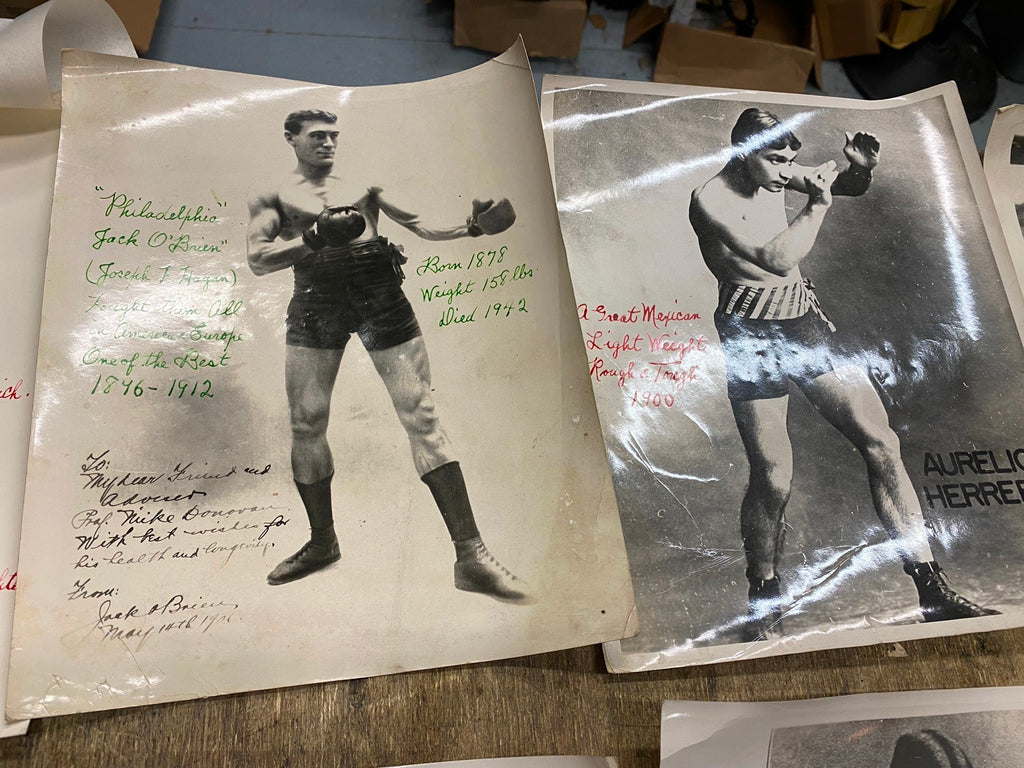 "Philadelphia"
Jack O'Brien"
(Joseph F Hagan)
Fought Them All
in America & Europe
One of the Best
1896-1912
Born 1878
Weight 158 lbs.
Died 1942
To:
My dear Friend and
Adviser
Prof. Mike Donovan
With best wishes for
his health and longevity.
From:
Jack O Brien
May 14th
A Great Mexican
Light Weight
Rough & Tough
1900
AURELIO
HERRER
ich.